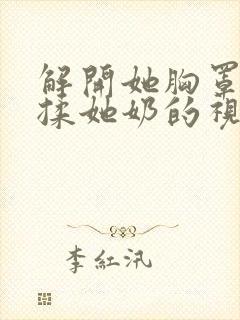 解開她胸罩
揉她奶的視
李紅汛